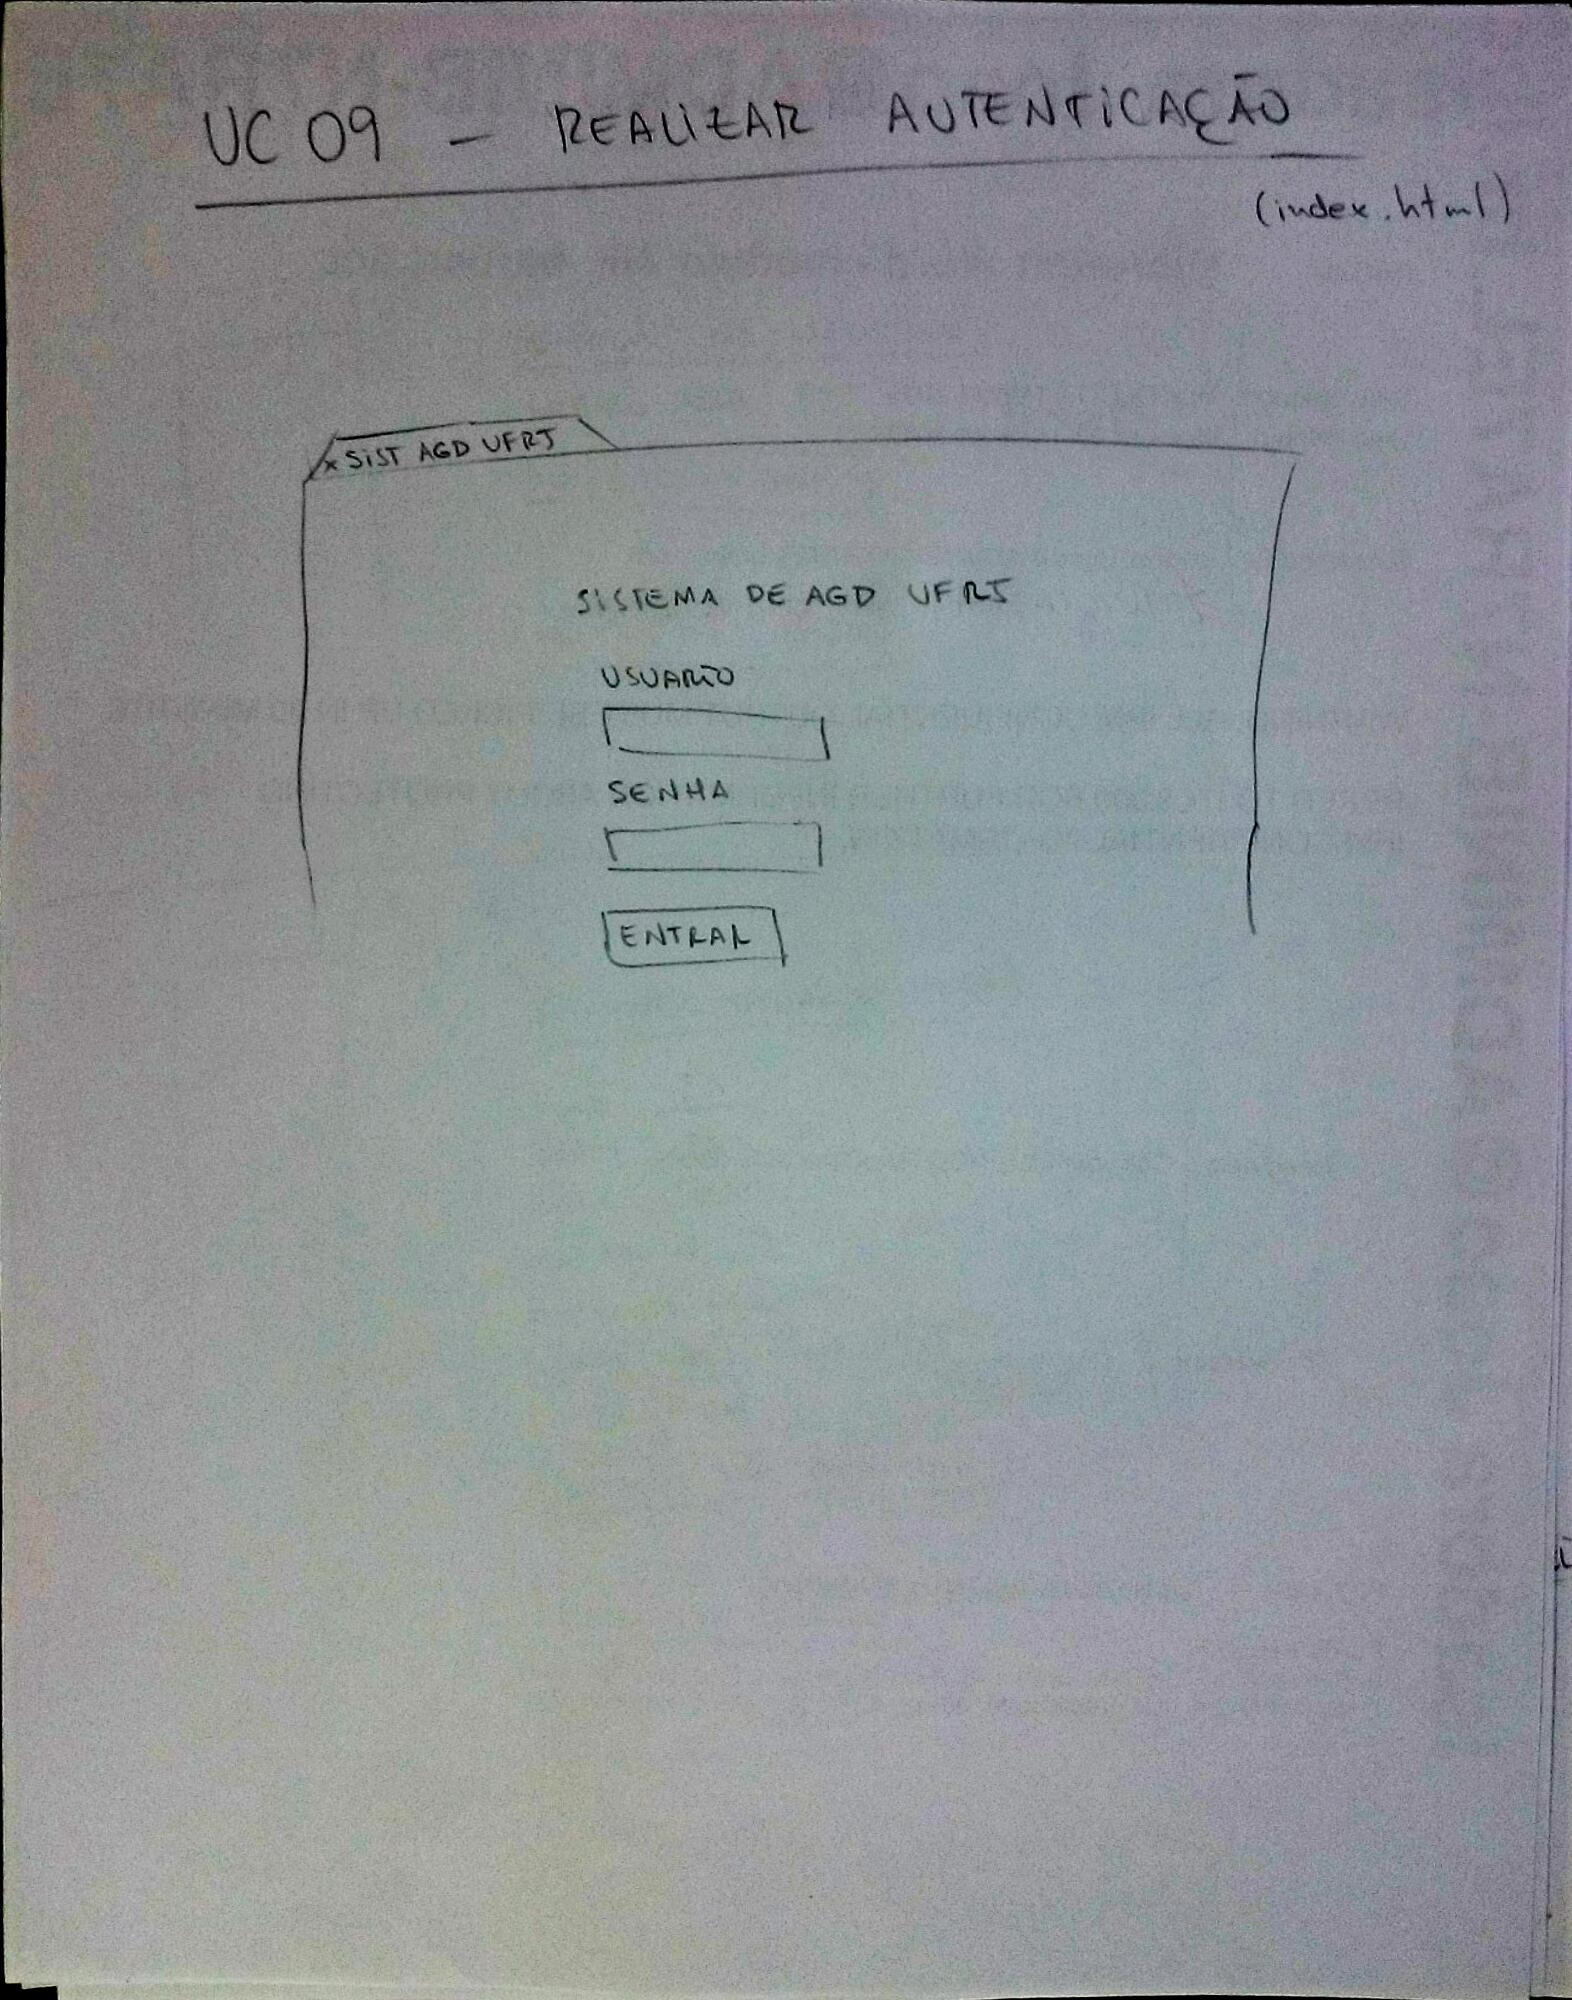 UC 09 - REALIZAR AUTENTICAÇÃO
(index.html)
x SIST AGD UFRJ
SISTEMA DE AGD UFRJ
USUARIO
SENHA
ENTRAR